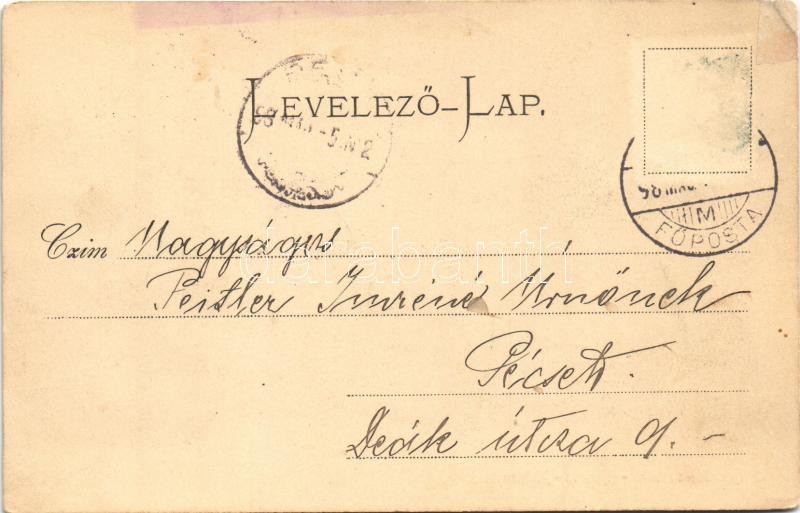 LEVELEZŐ-LAP.
98 5 N2
98
M
FŐPOSTA
Czim Nagyságos
Peitler Imréné Urnőnek
Pécsett.
Deák útcza 9.-
darabanth